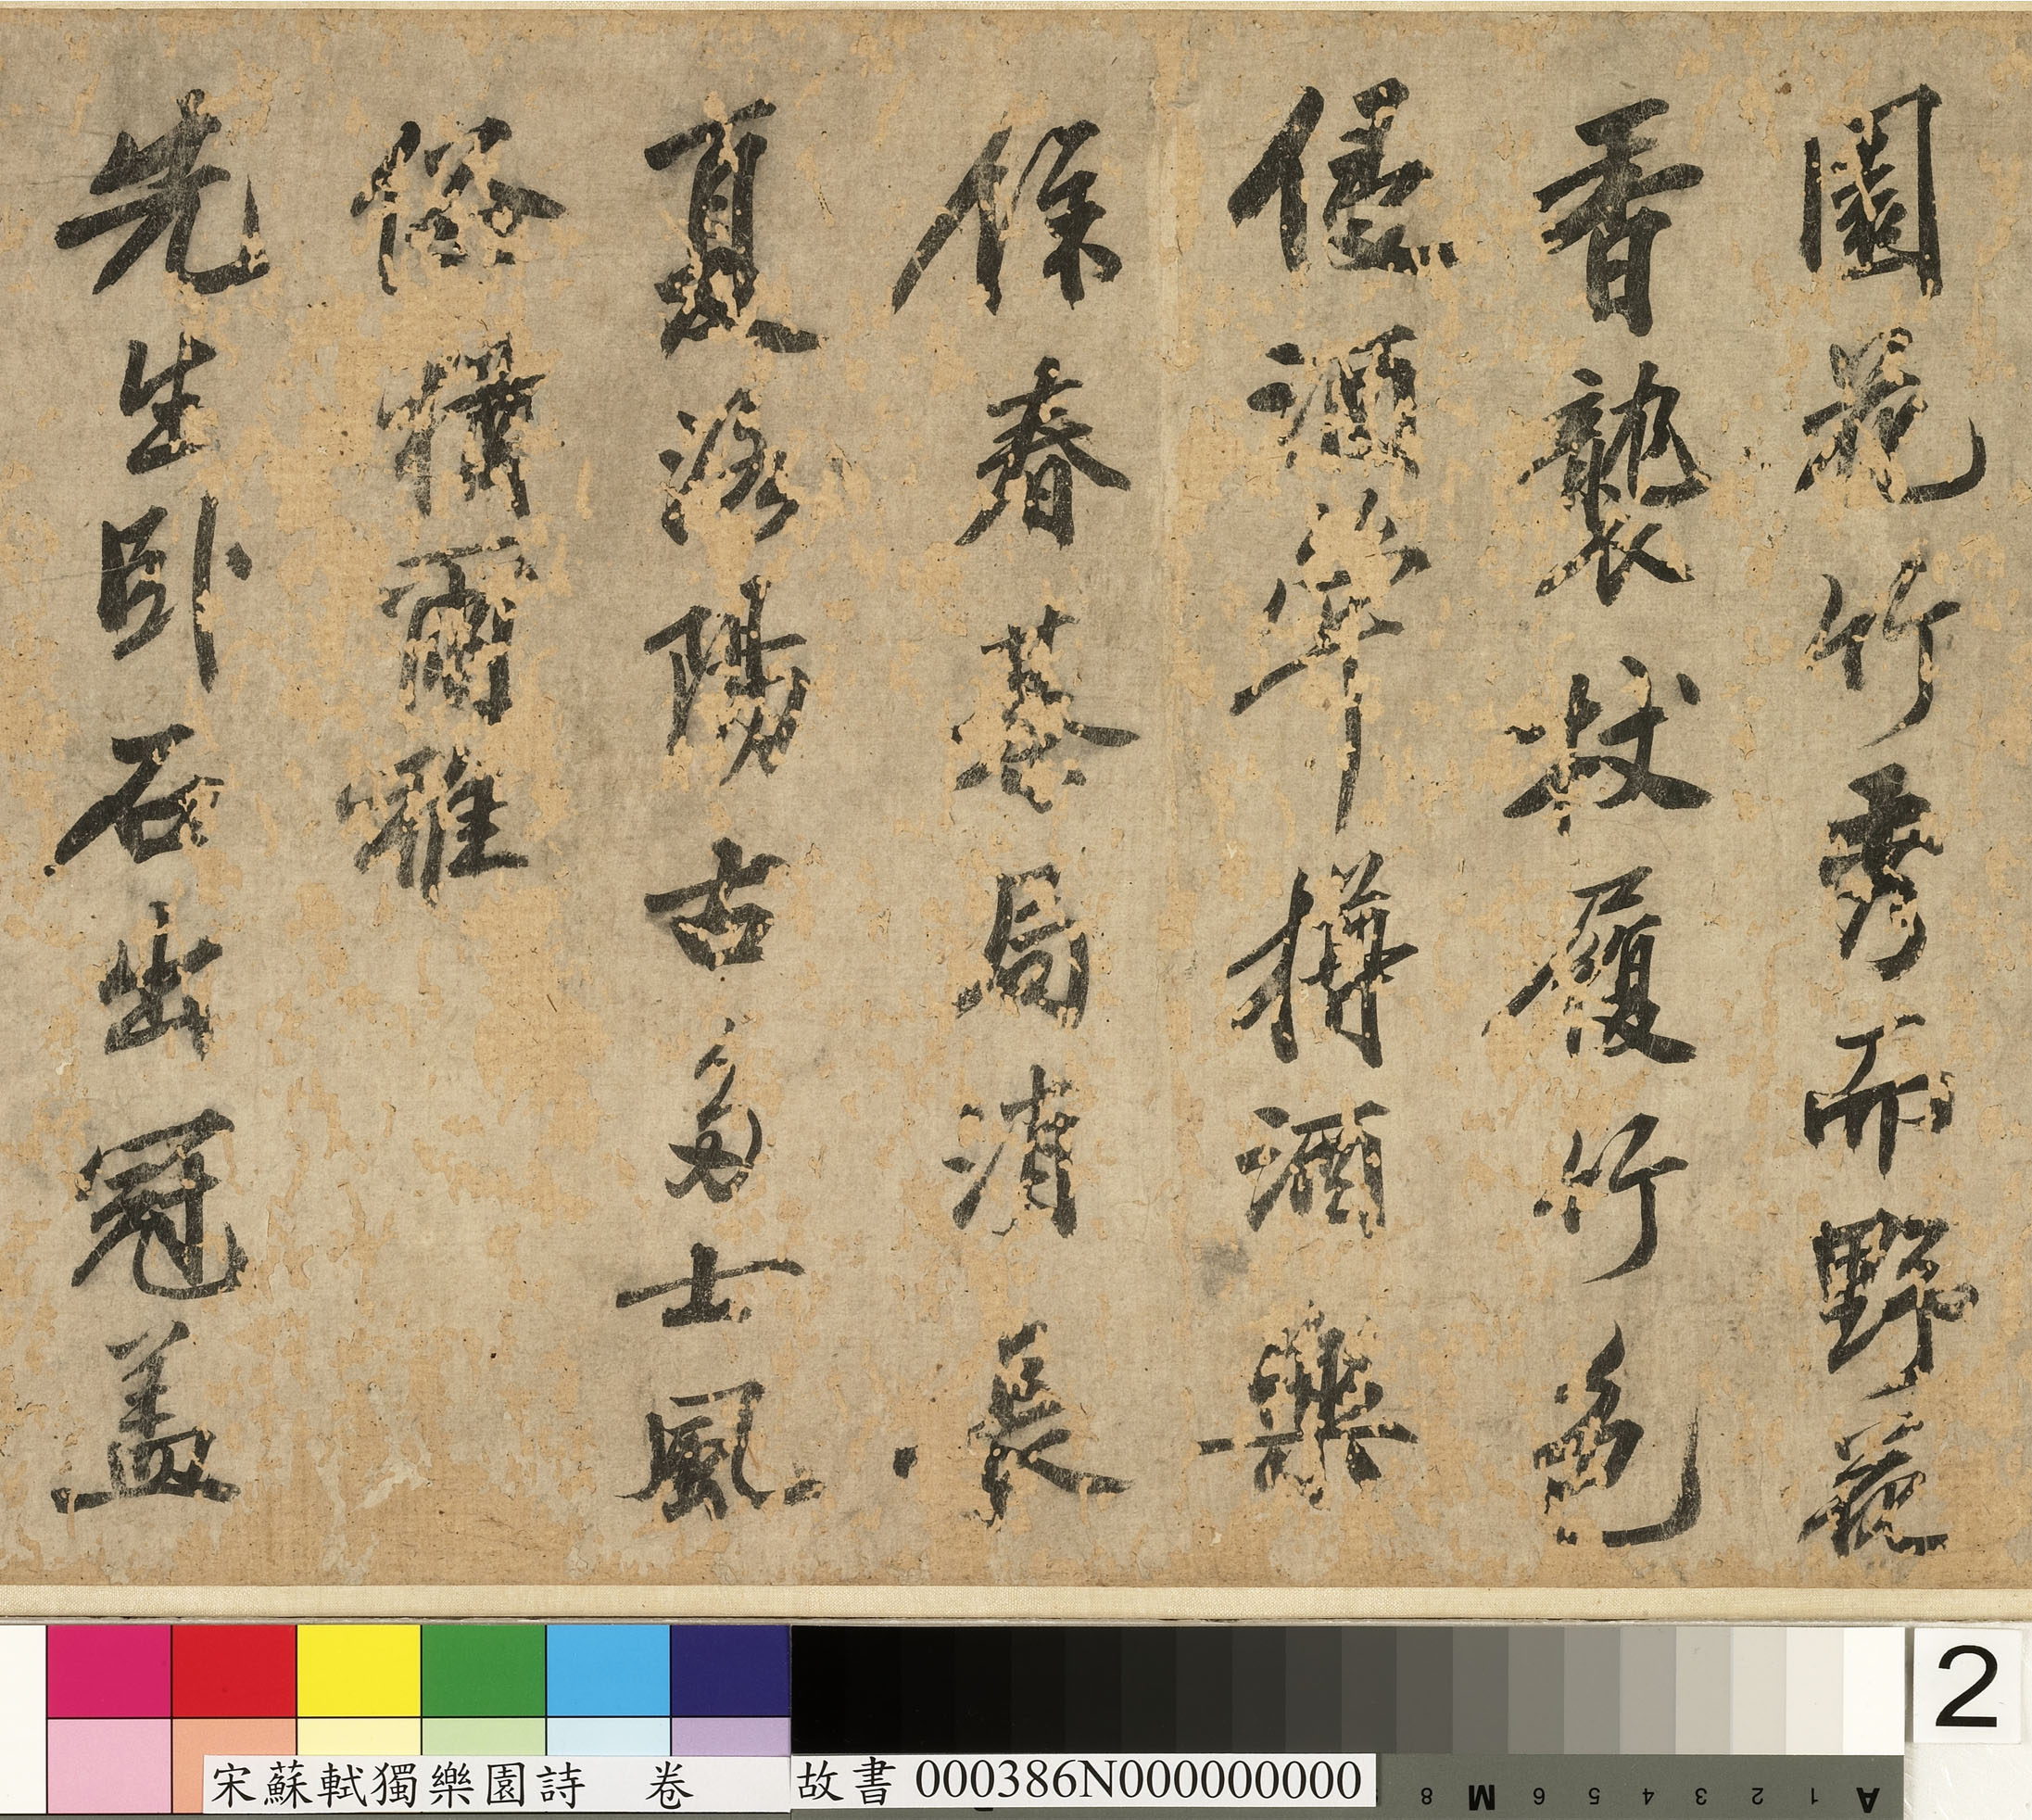 園花竹秀而野花
香襲杖屨竹色
侵酒斝樽酒樂
餘春棊局消長
夏洛陽古多士風
俗猶爾雅
先生卧石出冠盖
2
宋蘇軾獨樂園詩 卷
故書 000386N000000000
8 M 6 5 4 3 2 1 A